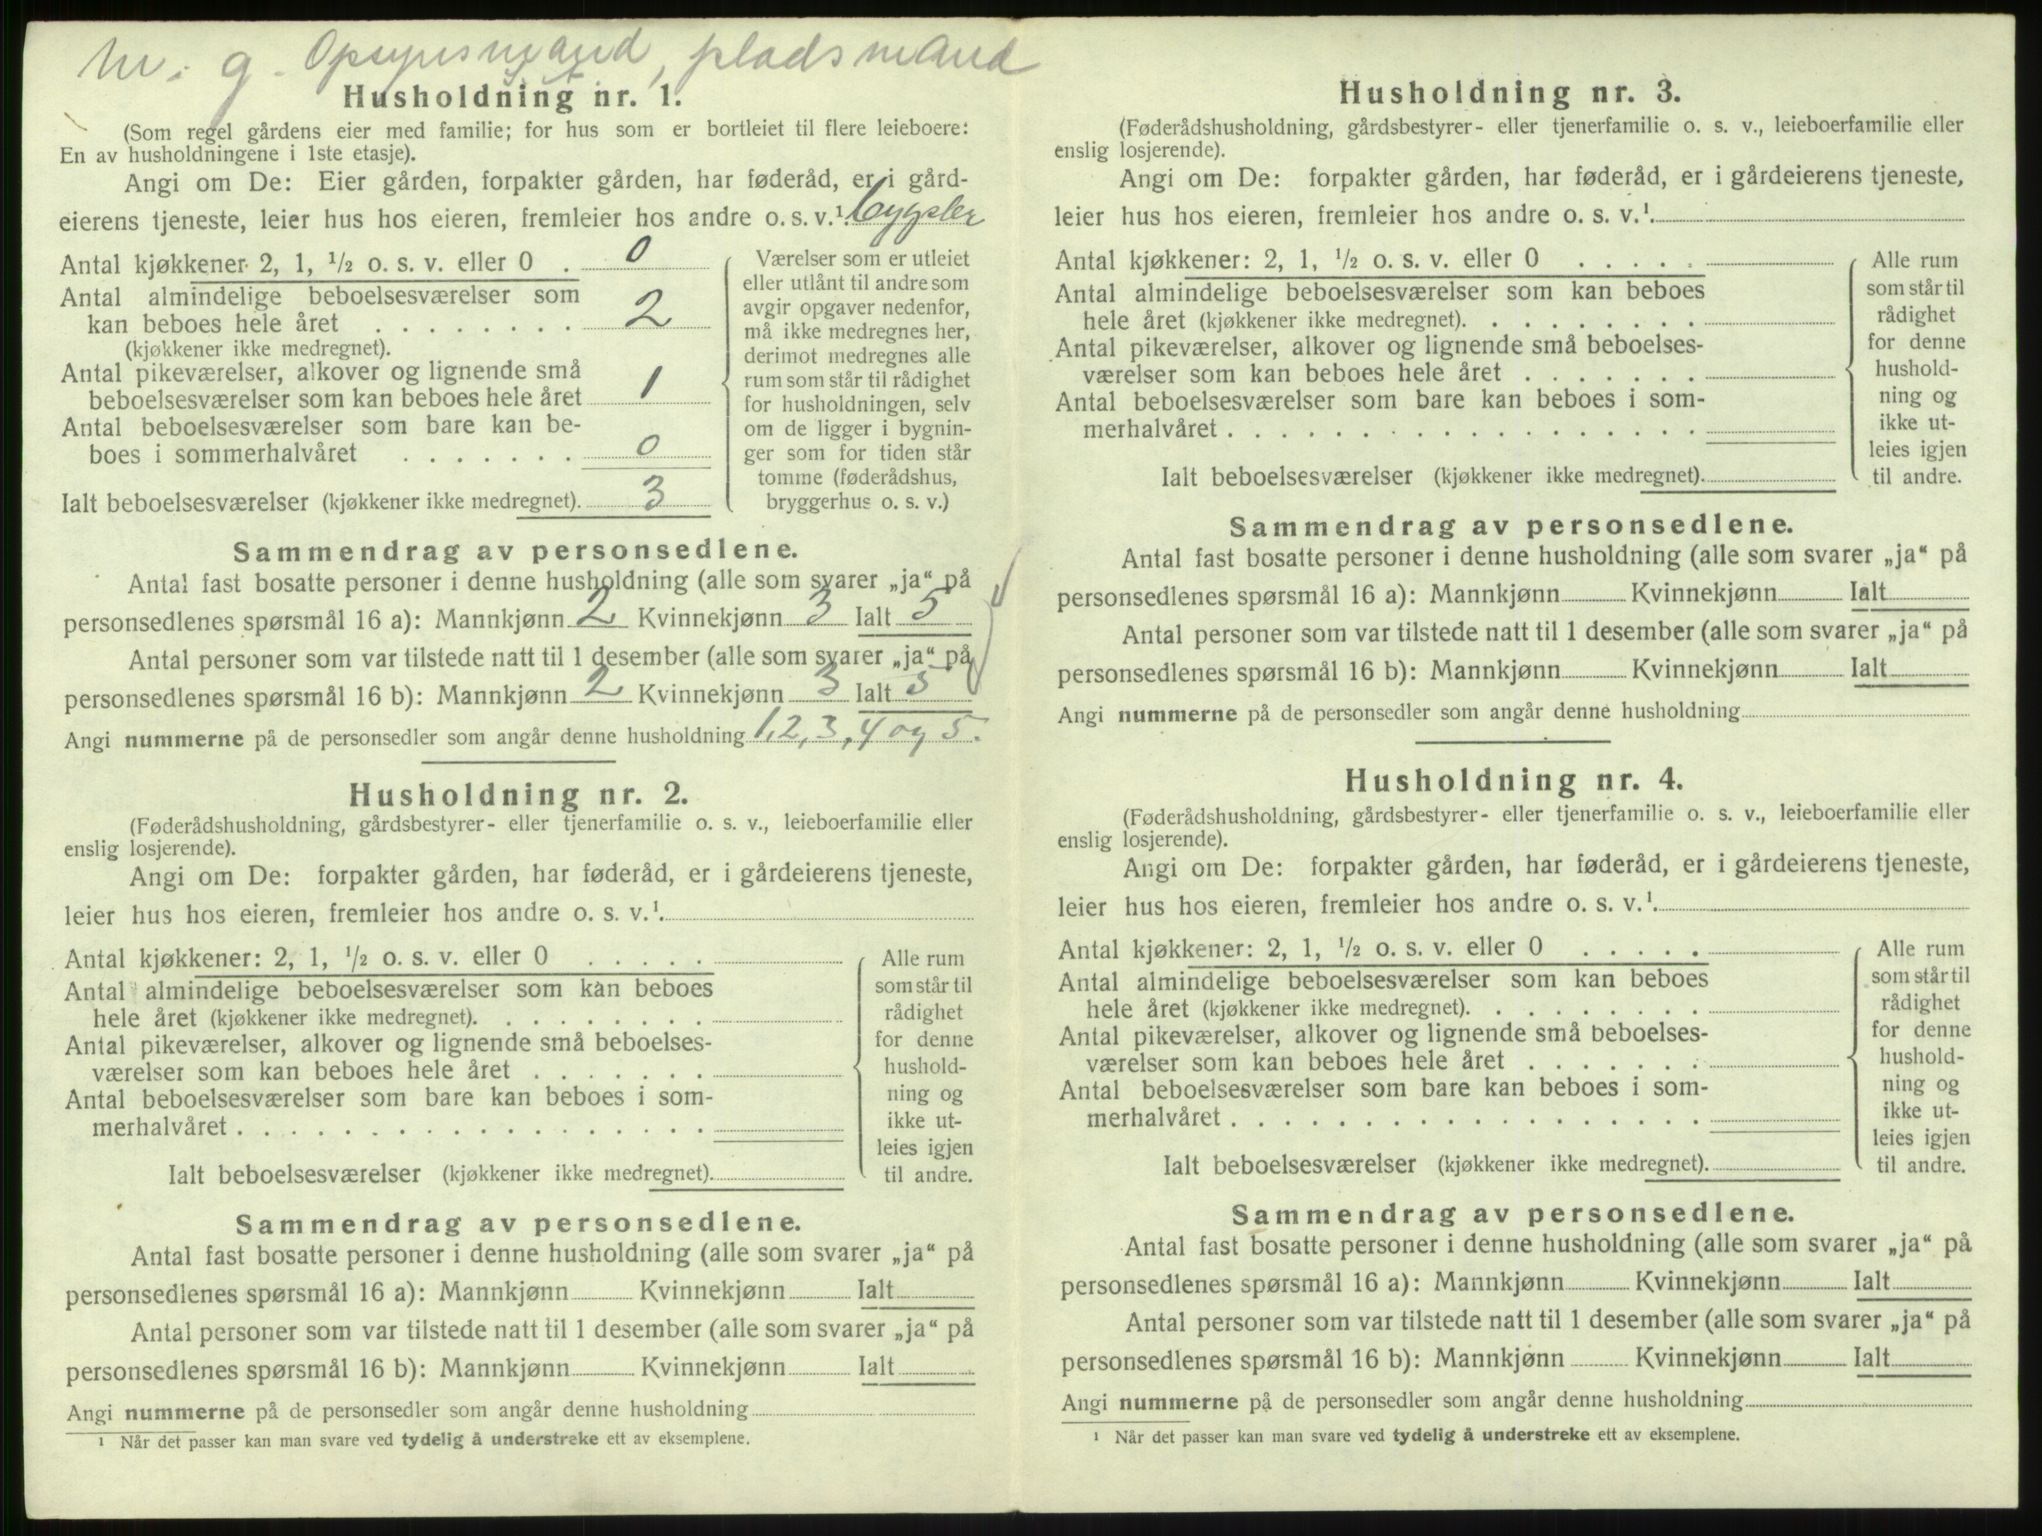 m. g. Opsynsmand, pladsmand
Husholdning nr. 1.
(Som regel gårdens eier med familie; for hus som er bortleiet til flere leieboere:
En av husholdningene i 1ste etasje).
Angi om De: Eier gården, forpakter gården, har føderåd, er i gård-
eierens tjeneste, leier hus hos eieren, fremleier hos andre o. s. v.¹ bygsler
Antal kjøkkener 2, 1, ½ o. s. v. eller 0 . 0
Antal almindelige beboelsesværelser som
kan beboes hele året . . . . . . . . 2
(kjøkkener ikke medregnet).
Antal pikeværelser, alkover og lignende små
beboelsesværelser som kan beboes hele året 1
Antal beboelsesværelser som bare kan be-
boes i sommerhalvåret . . . . . . . 0
Ialt beboelsesværelser (kjøkkener ikke medregnet). 3
Værelser som er utleiet
eller utlånt til andre som
avgir opgaver nedenfor,
må ikke medregnes her,
derimot medregnes alle
rum som står til rådighet
for husholdningen, selv
om de ligger i bygnin-
ger som for tiden står
tomme (føderådshus,
bryggerhus o. s. v.)
Sammendrag av personsedlene.
Antal fast bosatte personer i denne husholdning (alle som svarer „ja“ på
personsedlenes spørsmål 16 a): Mannkjønn 2 Kvinnekjønn 3 Ialt 5
Antal personer som var tilstede natt til 1 desember (alle som svarer „ja“ på
personsedlenes spørsmål 16 b): Mannkjønn 2 Kvinnekjønn 3 Ialt 5
Angi nummerne på de personsedler som angår denne husholdning 1, 2, 3, 4 og 5.
Husholdning nr. 2.
(Føderådshusholdning, gårdsbestyrer- eller tjenerfamilie o. s. v., leieboerfamilie eller
enslig losjerende).
Angi om De: forpakter gården, har føderåd, er i gårdeierens tjeneste,
leier hus hos eieren, fremleier hos andre o. s. v.¹.
Antal kjøkkener: 2, 1, ½ o. s. v. eller 0 . . . . .
Antal almindelige beboelsesværelser som kan beboes
hele året (kjøkkener ikke medregnet). . . . . . . . .
Antal pikeværelser, alkover og lignende små beboelses-
værelser som kan beboes hele året . . . . . . .
Antal beboelsesværelser som bare kan beboes i som-
merhalvåret . . . . . . . . . . . . . . . . . .
Ialt beboelsesværelser (kjøkkener ikke medregnet).
Alle rum
som står til
rådighet
for denne
hushold-
ning og
ikke ut-
leies igjen
til andre.
Sammendrag av personsedlene.
Antal fast bosatte personer i denne husholdning (alle som svarer „ja“ på
personsedlenes spørsmål 16 a): Mannkjønn Kvinnekjønn Ialt
Antal personer som var tilstede natt til 1 desember (alle som svarer „ja“ på
personsedlenes spørsmål 16 b): Mannkjønn Kvinnekjønn Ialt
Angi nummerne på de personsedler som angår denne husholdning
¹ Når det passer kan man svare ved tydelig å understreke ett av eksemplene.
Husholdning nr. 3.
(Føderådshusholdning, gårdsbestyrer- eller tjenerfamilie o. s. v., leieboerfamilie eller
enslig losjerende).
Angi om De: forpakter gården, har føderåd, er i gårdeierens tjeneste,
leier hus hos eieren, fremleier hos andre o. s. v.¹.
Antal kjøkkener: 2, 1, ½ o. s. v. eller 0 . . . . .
Antal almindelige beboelsesværelser som kan beboes
hele året (kjøkkener ikke medregnet). . . . . . . . .
Antal pikeværelser, alkover og lignende små beboelses-
værelser som kan beboes hele året . . . . . . .
Antal beboelsesværelser som bare kan beboes i som-
merhalvåret . . . . . . . . . . . . . . . . . .
Ialt beboelsesværelser (kjøkkener ikke medregnet).
Alle rum
som står til
rådighet
for denne
hushold-
ning og
ikke ut-
leies igjen
til andre.
Sammendrag av personsedlene.
Antal fast bosatte personer i denne husholdning (alle som svarer „ja“ på
personsedlenes spørsmål 16 a): Mannkjønn Kvinnekjønn Ialt
Antal personer som var tilstede natt til 1 desember (alle som svarer „ja“ på
personsedlenes spørsmål 16 b): Mannkjønn Kvinnekjønn Ialt
Angi nummerne på de personsedler som angår denne husholdning
Husholdning nr. 4.
(Føderådshusholdning, gårdsbestyrer- eller tjenerfamilie o. s. v., leieboerfamilie eller
enslig losjerende).
Angi om De: forpakter gården, har føderåd, er i gårdeierens tjeneste,
leier hus hos eieren, fremleier hos andre o. s. v.¹.
Antal kjøkkener: 2, 1, ½ o. s. v. eller 0 . . . . .
Antal almindelige beboelsesværelser som kan beboes
hele året (kjøkkener ikke medregnet). . . . . . . . .
Antal pikeværelser, alkover og lignende små beboelses-
værelser som kan beboes hele året . . . . . . .
Antal beboelsesværelser som bare kan beboes i som-
merhalvåret . . . . . . . . . . . . . . . . . .
Ialt beboelsesværelser (kjøkkener ikke medregnet).
Alle rum
som står til
rådighet
for denne
hushold-
ning og
ikke ut-
leies igjen
til andre.
Sammendrag av personsedlene.
Antal fast bosatte personer i denne husholdning (alle som svarer „ja“ på
personsedlenes spørsmål 16 a): Mannkjønn Kvinnekjønn Ialt
Antal personer som var tilstede natt til 1 desember (alle som svarer „ja“ på
personsedlenes spørsmål 16 b): Mannkjønn Kvinnekjønn Ialt
Angi nummerne på de personsedler som angår denne husholdning
¹ Når det passer kan man svare ved tydelig å understreke ett av eksemplene.